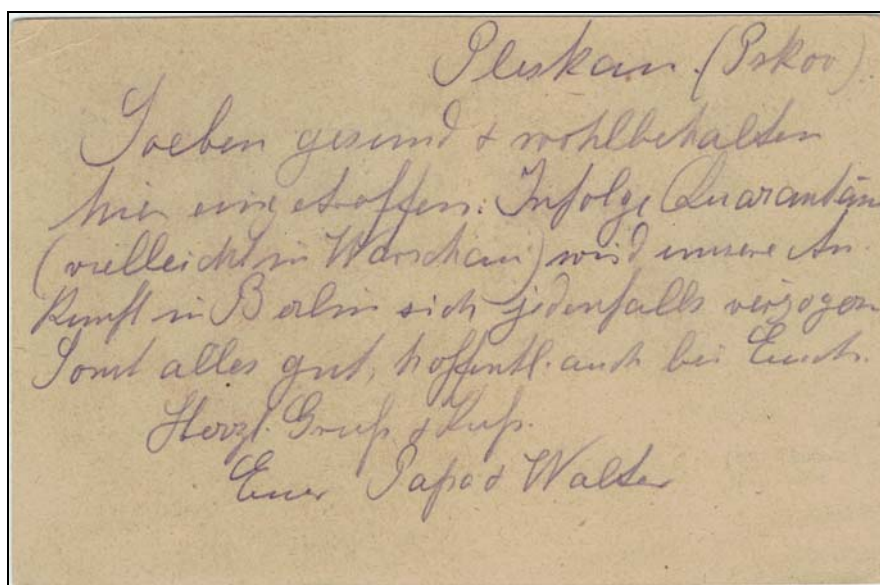 Pleskau. (Pskov)
Soeben gesund & wohlbehalten
hier eingetroffen. Infolge Quarantäne
(vielleicht in Warschau) wird unsere An-
kunft in Berlin sich jedenfalls verzögern
Sonst alles gut, hoffentl. auch bei Euch.
Herzl. Gruß & Kuß.
Euer Papa & Walter